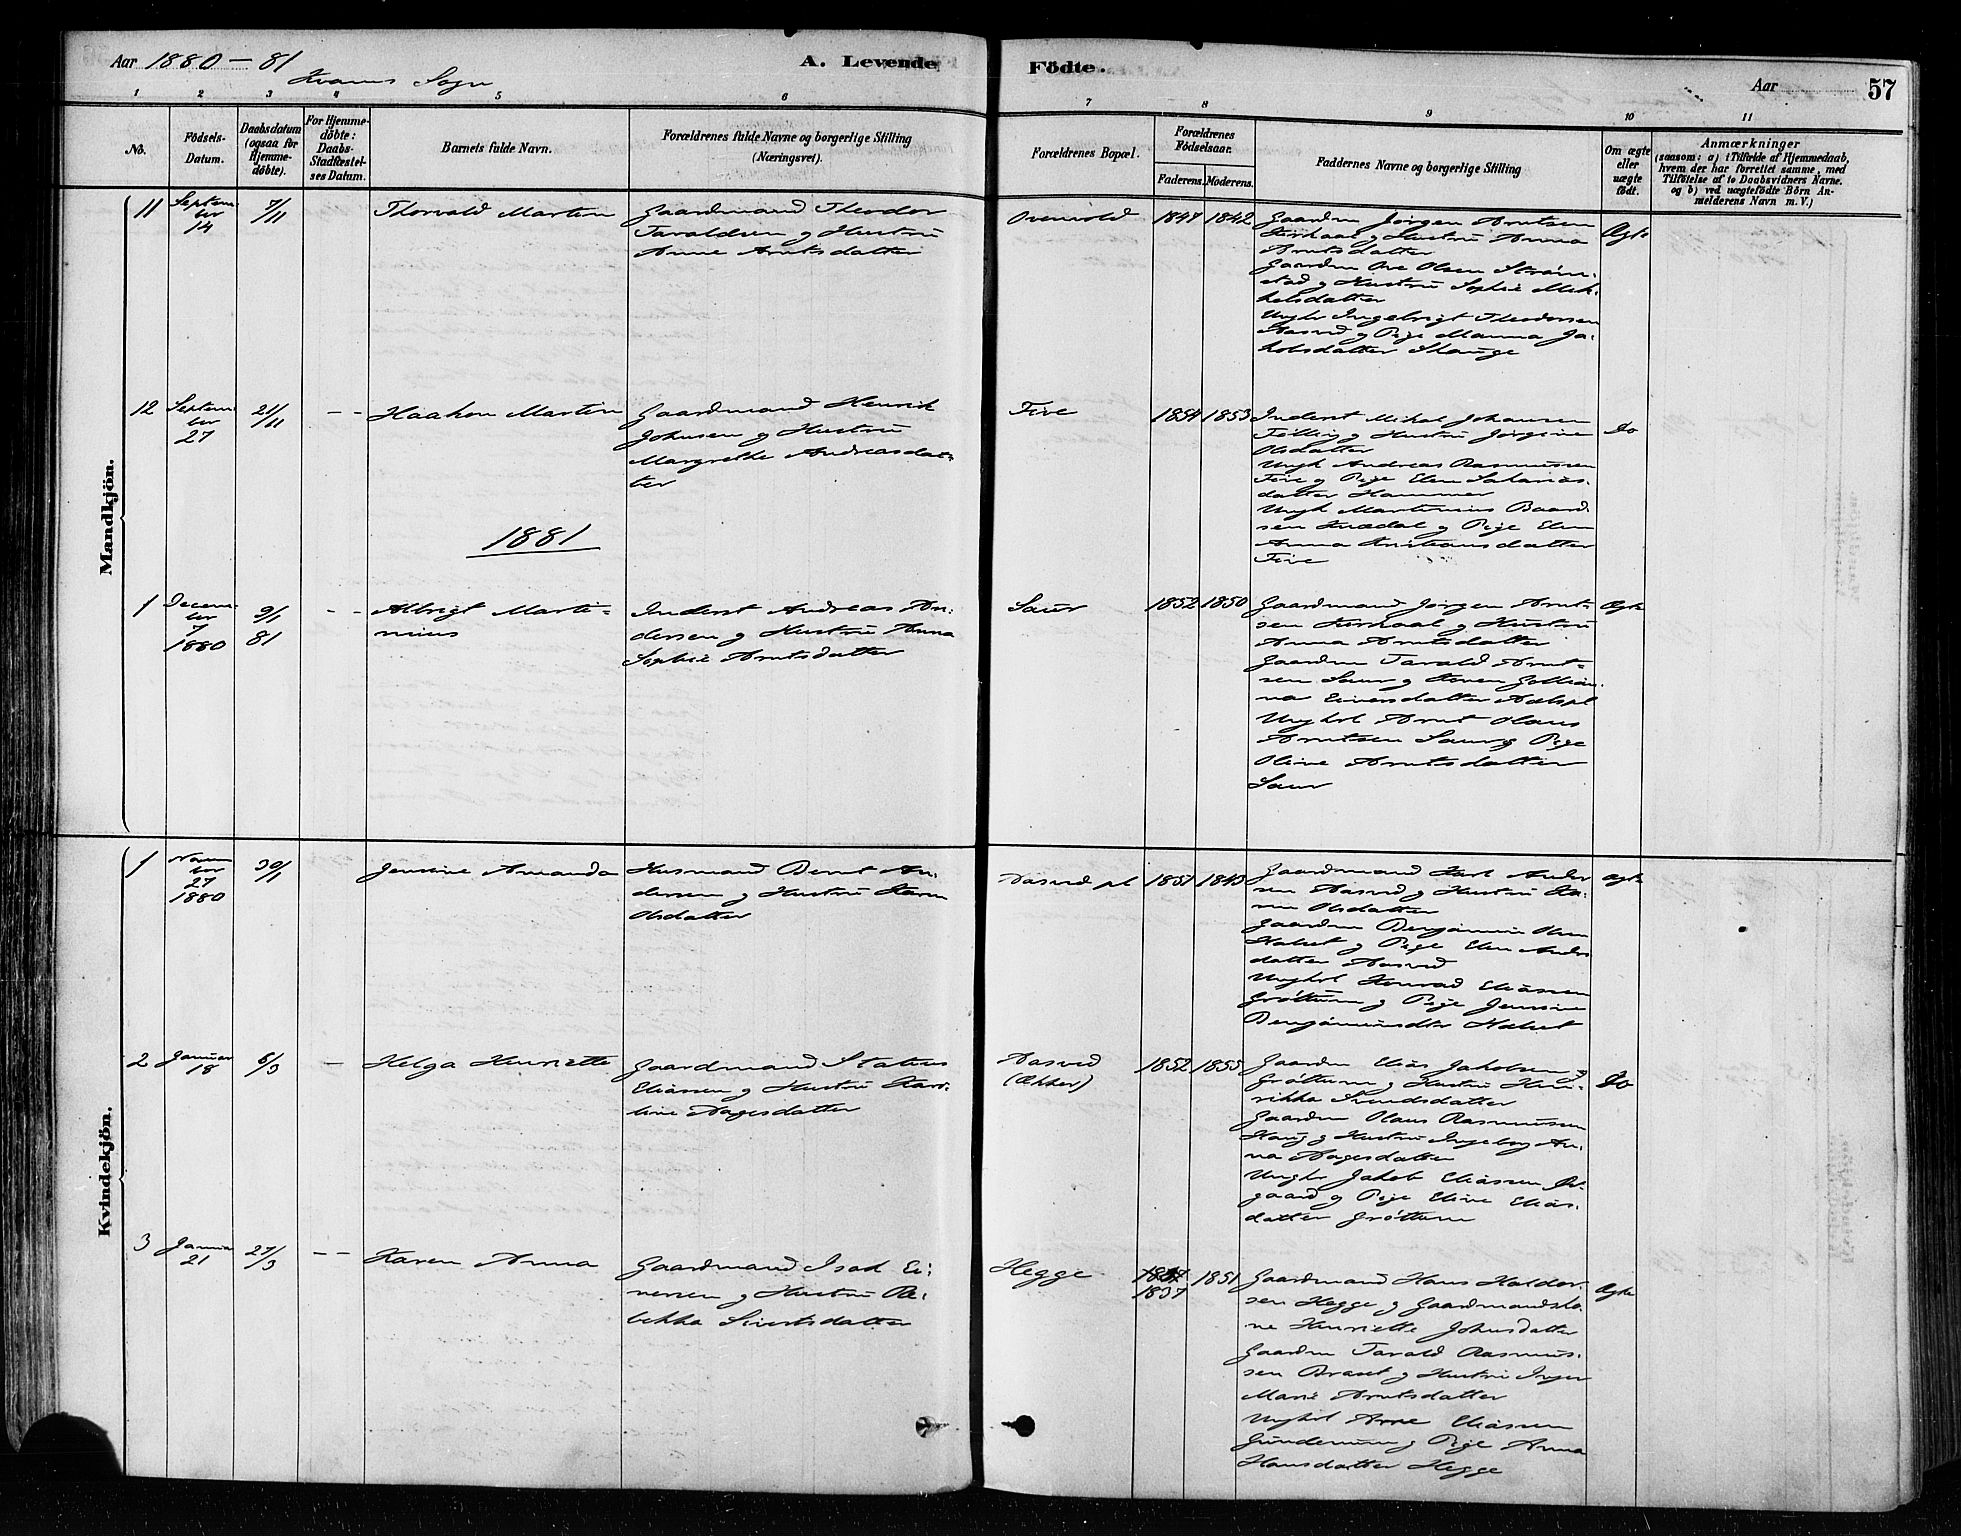 Aar 1880 – 81
Kvams Sogn
A. Levende Födte.
Aar
57
1 2 3 4 5 6 7 8 9 10 11
No.
Födsels-Datum.
Daabsdatum (ogsaa for Hjemme-döbte).
For Hjemme-döbte: Daabs-Stadfæstel-ses Datum.
Barnets fulde Navn.
Forældrenes fulde Navne og borgerlige Stilling (Næringsvei).
Forældrenes Bopæl.
Forældrenes Födselsaar.
Faderens. Moderens.
Faddernes Navne og borgerlige Stilling
Om ægte eller uægte födt.
Anmærkninger
(saasom: a) i Tilfælde af Hjemmedaab,
hvem der har forrettet samme, med
Tilföielse af to Daabsvidners Navne.
og b) ved uægtefödte Börn An-
melderens Navn m. V.)
Mandkjön.
11 Septem-ber 14 7/11 Thorvald Martin
Gaardmand Theodor
Taraldsen og Hustru
Anne Arntsdatter
1847 1842
Gaardm Jørgen Arntsen
og Hustru Anna
Arntsdatter
Gaardm Ove Olsen Strøm-
stad og Hustru Sophie Mik-
kelsdatter
Ungkr Ingebrigt Theodorsen
Aasved og Pige Manna Ja-
kobsdatter Skauge
Ægte
12 Septem-ber 27 21/11 – – Haakon Martin
Gaardmand Henrik
Johnsen og Hustru
Margrethe Andreasdat-
ter
Five
1854 1853
Inderst Mikal Johansen
Følling og Hustru Jørgine
Olsdatter
Ungk Andreas Rasmussen
Five og Pige Elen Sakarias-
datter Hammer
Ungk Martinius Baard-
sen og Pige Elen
Anna Kristiansdatter
Five
Do
1881
1 Decem-ber 7 1880 9/1 81 – – Albrigt Marti-
nius
Inderst Andreas An-
dersen og Hustru Anna
Sophie Arntsdatter
Saur
1852 1850
Gaardmand Jørgen Arnt-
sen og Hustru
Anna Arntsdatter
Gaardm Tarald Arnt-
sen Saur og Konen
Eivensdatter
Ungkl Arnt Olaus
Arntsen Saur og Pige
Oline Arntsdatter
Saur
Ægte
Kvindekjön.
1 Novem-ber 27 1880 30/1 Jensine Amanda
Husmand Bernt An-
dersen og Hustru Karen
Olsdatter
Aasved pl
1851 1843
Gaardmand Karl Ander
sen Aasved og Hustru Ka-
ren Olsdatter
Gaardm Benjamin Olsen
Halset og Pige Elen Anders
datter Aasved
Ungkl Konrad Eliassen
Grøttum og Pige Jensine
Benjaminsdtr Halset
Ægte
2 Januar 18 6/3 – Helga Henriette
Gaardmand Statius
Eliassen og Hustru Karo-
line Aagesdatter
Aasved
(Økker)
1852 1855
Gaardm Elias Jakobsen
Grøttum og Hustru Hen-
rikka Svendsdatter
Gaardm Olaus Rasmussen
Haug og Hustru Ingeborg An-
na Aagesdatter
Ungkr Jakob Eliassen Øst-
gaard og Pige Eline Elias-
datter Grøttum
Do
3 Januar 21 27/3 – – Karen Anna
Gaardmand Isak Ei-
versen og Hustru Re-
bekka Sivertsdatter
Hegge
1837 1851
Gaardmand Hans Haldor-
sen Hegge og Gaardmandsko-
ne Henriette Johnsdatter
Gaardm Tarald Rasmus-
sen Braset og Hustru Inger
Marie Arntsdatter
Ungkl Arne Eliassen
og Pige Anna
Hansdatter Hegge
Ægte